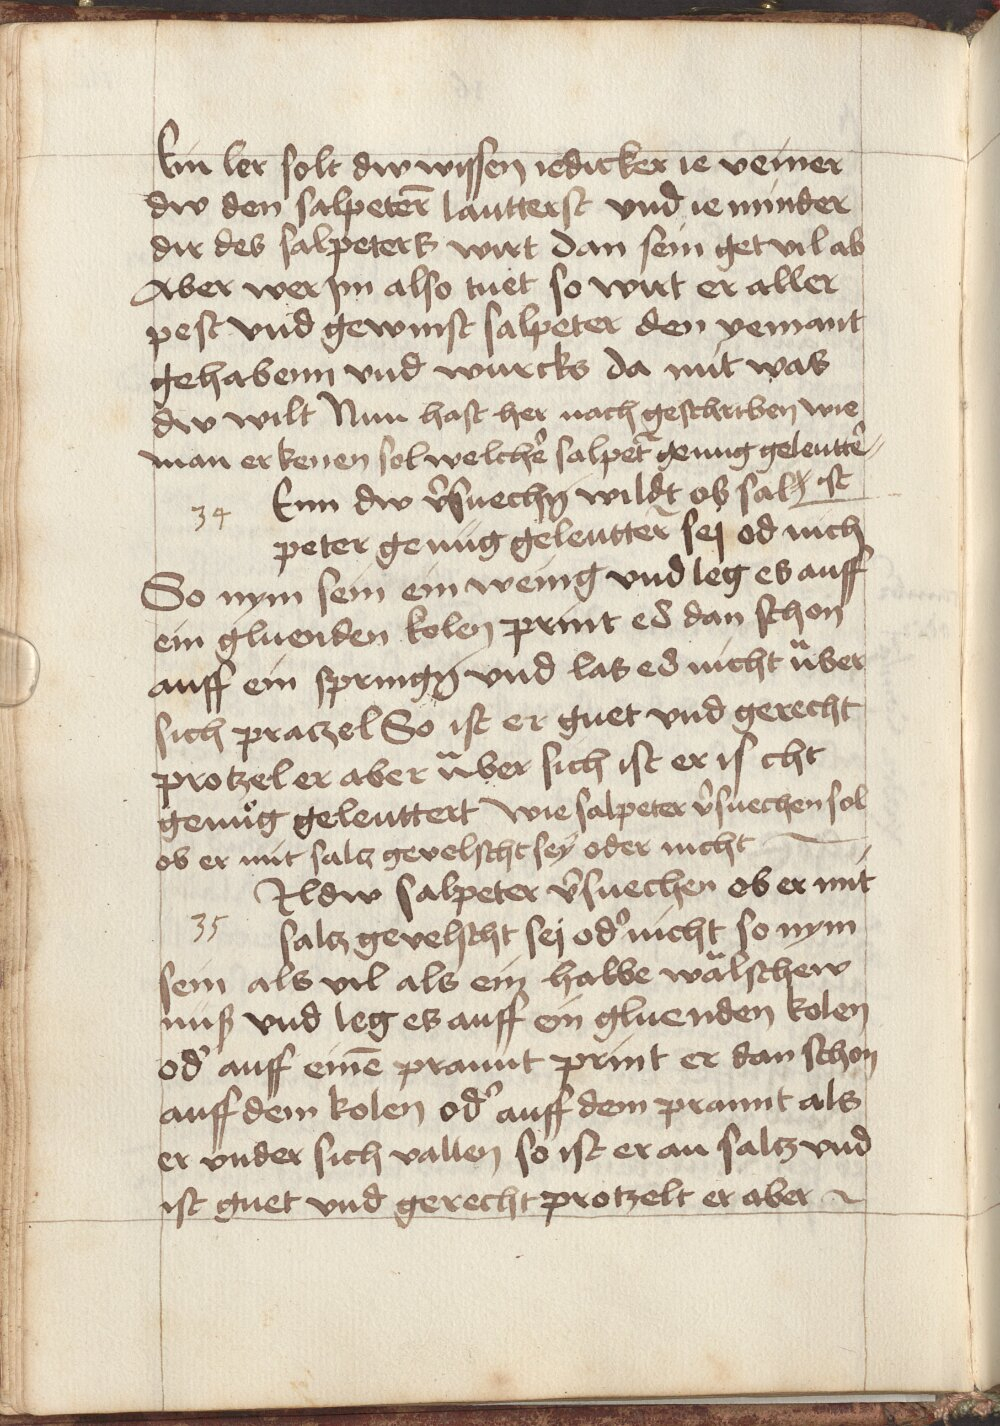 Ein ler solt dw wissen iedicker ie veiner
dw den salpeter̄ lautterst vnd ie minder
dir des salpeters wirt dan sein get vil ab
Aber wer Im also tuet so wirt er aller
pest vnd gewinst salpeter den yemant
gehabenn vnd wurcks da mit was
dw wilt Nun hast her nach geschriben wie
man erkenen sol welchẽ salpet̃ genug geleutte᷑
ist
34 Enn dw v᷑suechn̄ wildt ob sal
peter genüg geleutter̄ sej od nich
So nym sein ein wenig vnd leg es auff
ein gluenden kolen print es dan schon
auff ein springn̄ vnd las es nicht ü̈ber
sich pratzel So ist er guet vnd gerecht
protzel er aber ü̈ber sich ist er is cht
genuͦg geleuttert wie salpeter v᷑suechen sol
ob er mit saltz gevelscht sey oder nicht
Ildw salpeter v᷑suechen ob er mit
35 saltz gevelscht sej od᷑ nicht so nym
sein als vil als ein halbe wälschew
nuß vnd leg es auff ein gluenden kolen
od᷑ auff einē prannt print er dan schon
auff dem kolen od᷑ auff dem prannt als
er vnder sich vallen so ist er an saltz vnd
ist guet vnd gerecht protzelt er aber